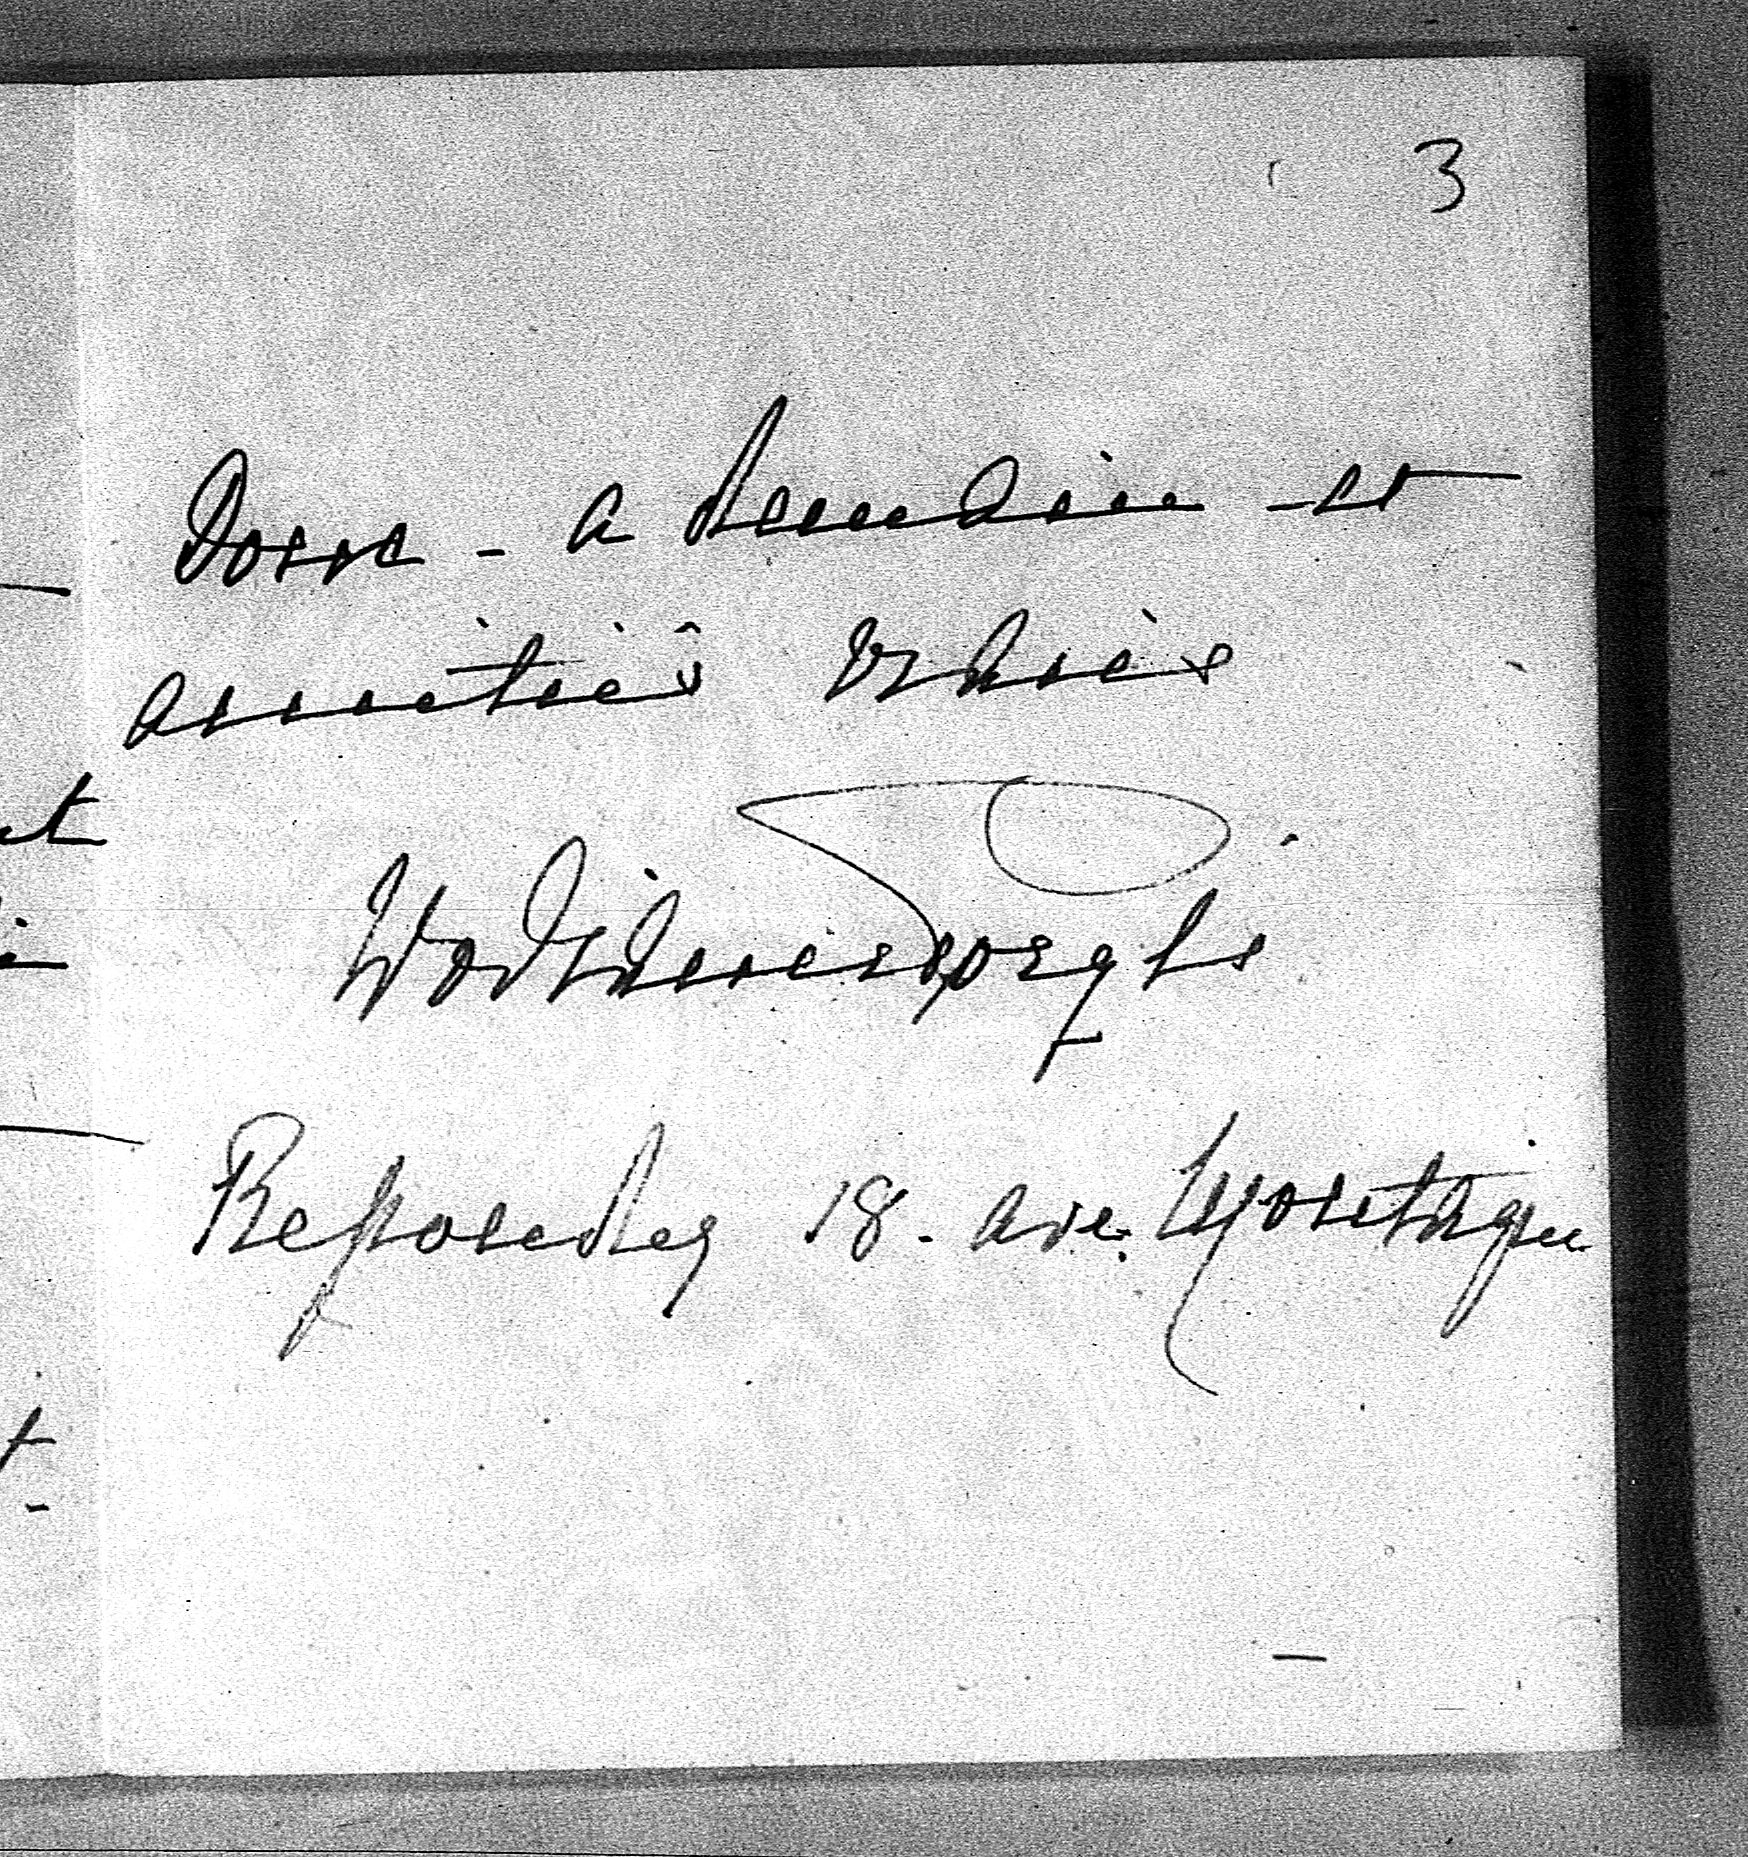 3
Donc - a demain - et
amitiés vraies
Répondez 18. ave. Montaigne